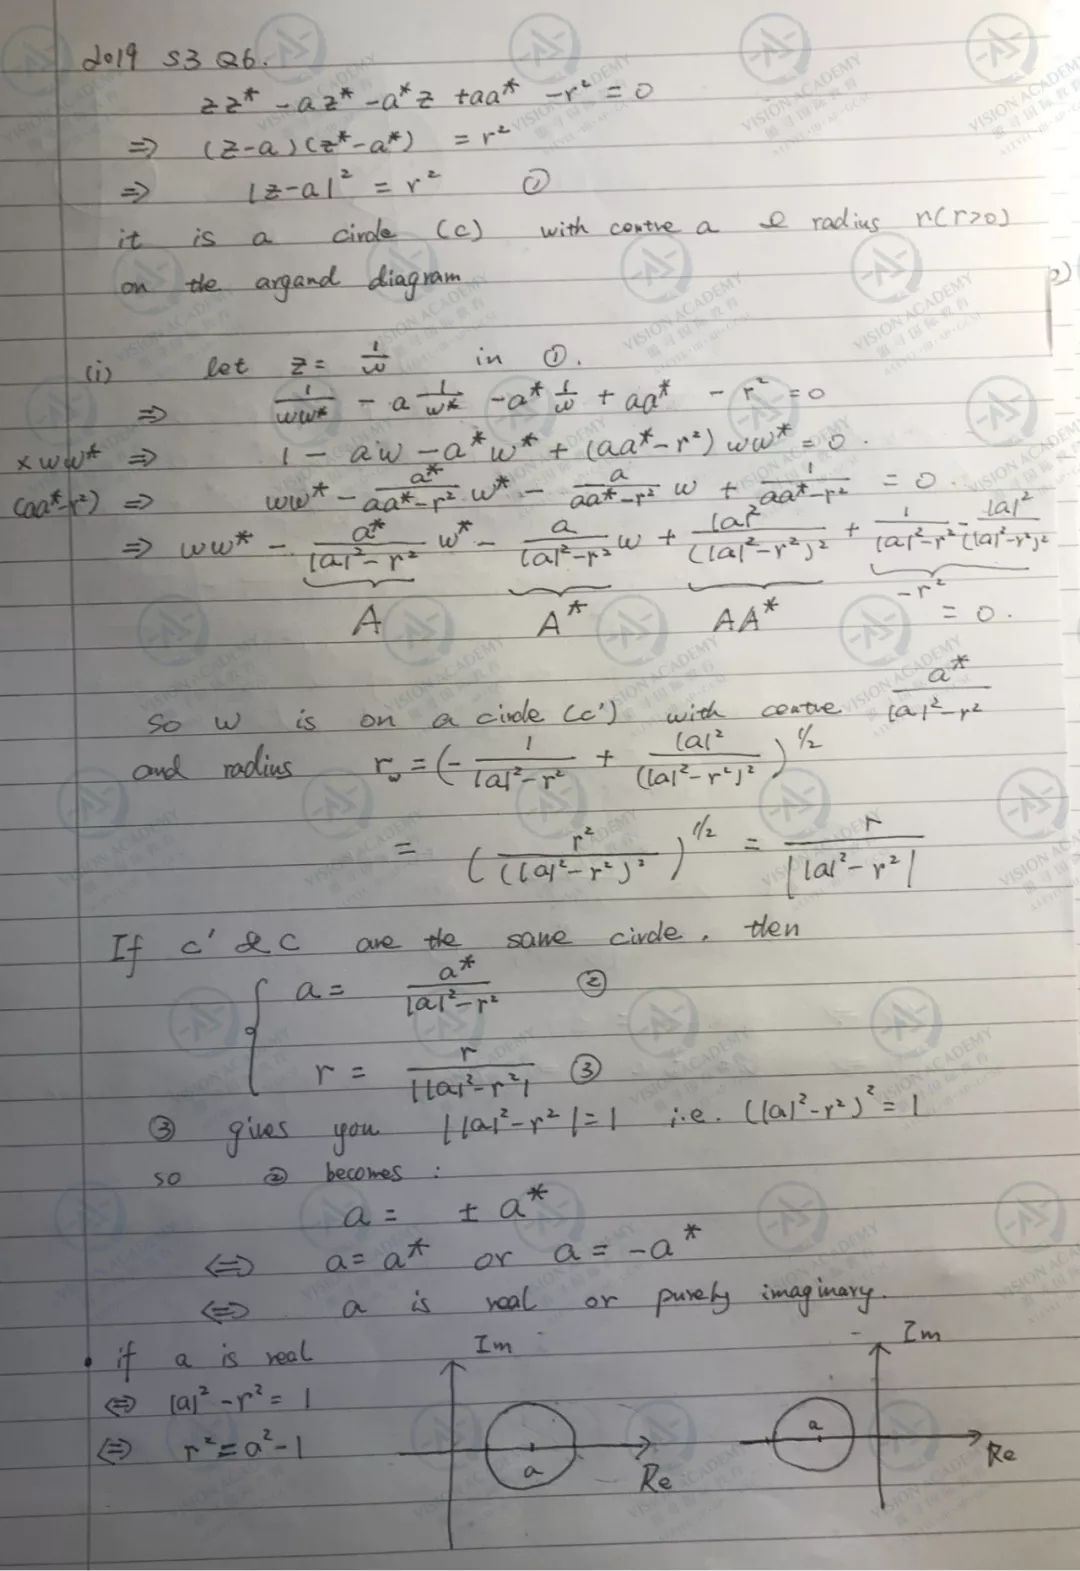 2019 S3 Q6.
zz* - az* - a*z + aa* - r² = 0
⇒ (z-a)(z*-a*) = r²
⇒ |z-a|² = r² ①
it is a circle (c) with centre a & radius r(r>0)
on the argand diagram
(i) let z = 1/w in ①.
⇒ 1/ww* - a 1/w* - a* 1/w + aa* - r² = 0
×ww* ⇒ 1 - aw - a*w* + (aa*-r²)ww* = 0.
(aa*-r²) ⇒ ww* - a*/(aa*-r²) w* - a/(aa*-r²) w + 1/(aa*-r²) = 0.
⇒ ww* - a*/(|a|²-r²) w* - a/(|a|²-r²) w + |a|²/(|a|²-r²)² + 1/(|a|²-r²) - |a|²/(|a|²-r²)²
A A* AA* -r² = 0.
So w is on a circle (c') with centre a*/(|a|²-r²)
and radius r_w = (- 1/(|a|²-r²) + |a|²/(|a|²-r²)²)^1/2
= (r²/(|a|²-r²)²)^1/2 = r/||a|²-r²|
If c' & c are the same circle, then
{ a = a*/(|a|²-r²) ②
r = r/||a|²-r²| ③
③ gives you ||a|²-r²| = 1 i.e. (|a|²-r²)² = 1
so ② becomes :
a = ± a*
⇔ a = a* or a = -a*
⇔ a is real or purely imaginary.
• if a is real
⇔ |a|² - r² = 1
⇔ r² = a² - 1
Im
a
Re
Im
a
Re
VISION ACADEMY